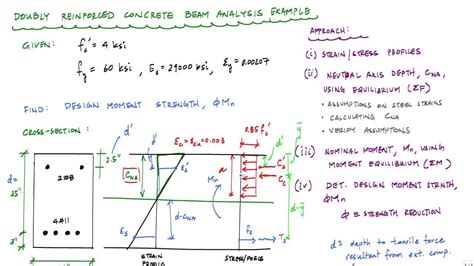 DOUBLY REINFORCED CONCRETE BEAM ANALYSIS EXAMPLE
GIVEN:
f'c = 4 ksi
fy = 60 ksi, Es = 29000 ksi, Ey = 0.00207
FIND: DESIGN MOMENT STRENGTH, ΦMn
CROSS-SECTION:
d'
2.5"
2#8
d=
25"
4#11
3"
εc = εcu = 0.003
d'
CNA
εs'
d-CNA
STRAIN
PROFILE
0.85 f'c
a
Mn
C's
Cc
ȳ
d-ȳ
Ts
STRESS/FORCE
APPROACH:
(i) STRAIN/STRESS PROFILES
(ii) NEUTRAL AXIS DEPTH, CNA,
USING EQUILIBRIUM (ΣF)
• ASSUMPTIONS ON STEEL STRAINS
- CALCULATING CNA
- VERIFY ASSUMPTIONS
(iii) NOMINAL MOMENT, Mn, USING
MOMENT EQUILIBRIUM (ΣM)
(iv) DET. DESIGN MOMENT STRNTH,
ΦMn
Φ ≡ STRENGTH REDUCTION
d ≡ depth to tensile force
resultant from ext. comp.